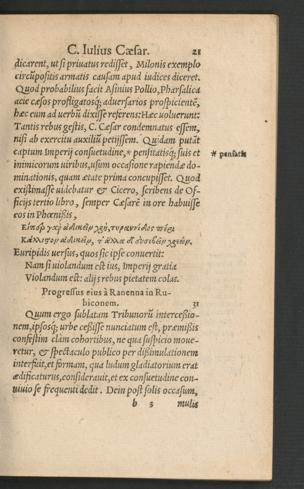 C. Iulius Cæsar. 21
dicarent, ut si priuatus redisset, Milonis exemplo
circũpositis armatis causam apud iudices diceret.
Quod probabilius facit Asinius Pollio, Pharsalica
acie cæsos profligatosq; aduersarios prospicientẽ,
hæc eum ad uerbũ dixisse referens: Hæc uoluerunt:
Tantis rebus gestis, C. Cæsar condemnatus essem,
nisi ab exercitu auxiliũ petijssem. Quidam putãt
captum Imperij consuetudine, * pensitatisq; suis et * pensatis
inimicorum uiribus, usum occasione rapiendæ do-
minationis, quam ætate prima concupisset. Quod
existimasse uidebatur & Cicero, scribens de Of-
ficijs tertio libro, semper Cæsarẽ in ore habuisse
eos in Phœnissis,
Εἴπερ γὰρ ἀδικεῖν χρή, τυραννίδος πέρι
Κάλλιστον ἀδικεῖν, τ' ἄλλα δ' εὐσεβεῖν χρεών.
Euripidis uersus, quos sic ipse conuertit:
Nam si uiolandum est ius, Imperij gratia
Violandum est: alijs rebus pietatem colas.
Progressus eius à Rauenna in Ru-
biconem. 31
Quum ergo sublatam Tribunorũ intercessio-
nem, ipsosq; urbe cessisse nunciatum est, præmissis
confestim clàm cohortibus, ne qua suspicio moue-
retur, & spectaculo publico per dissimulationem
interfuit, et formam, qua ludum gladiatorium erat
ædificaturus, considerauit, et ex consuetudine con-
uiuio se frequenti dedit. Dein post solis occasum,
b 3 mulis